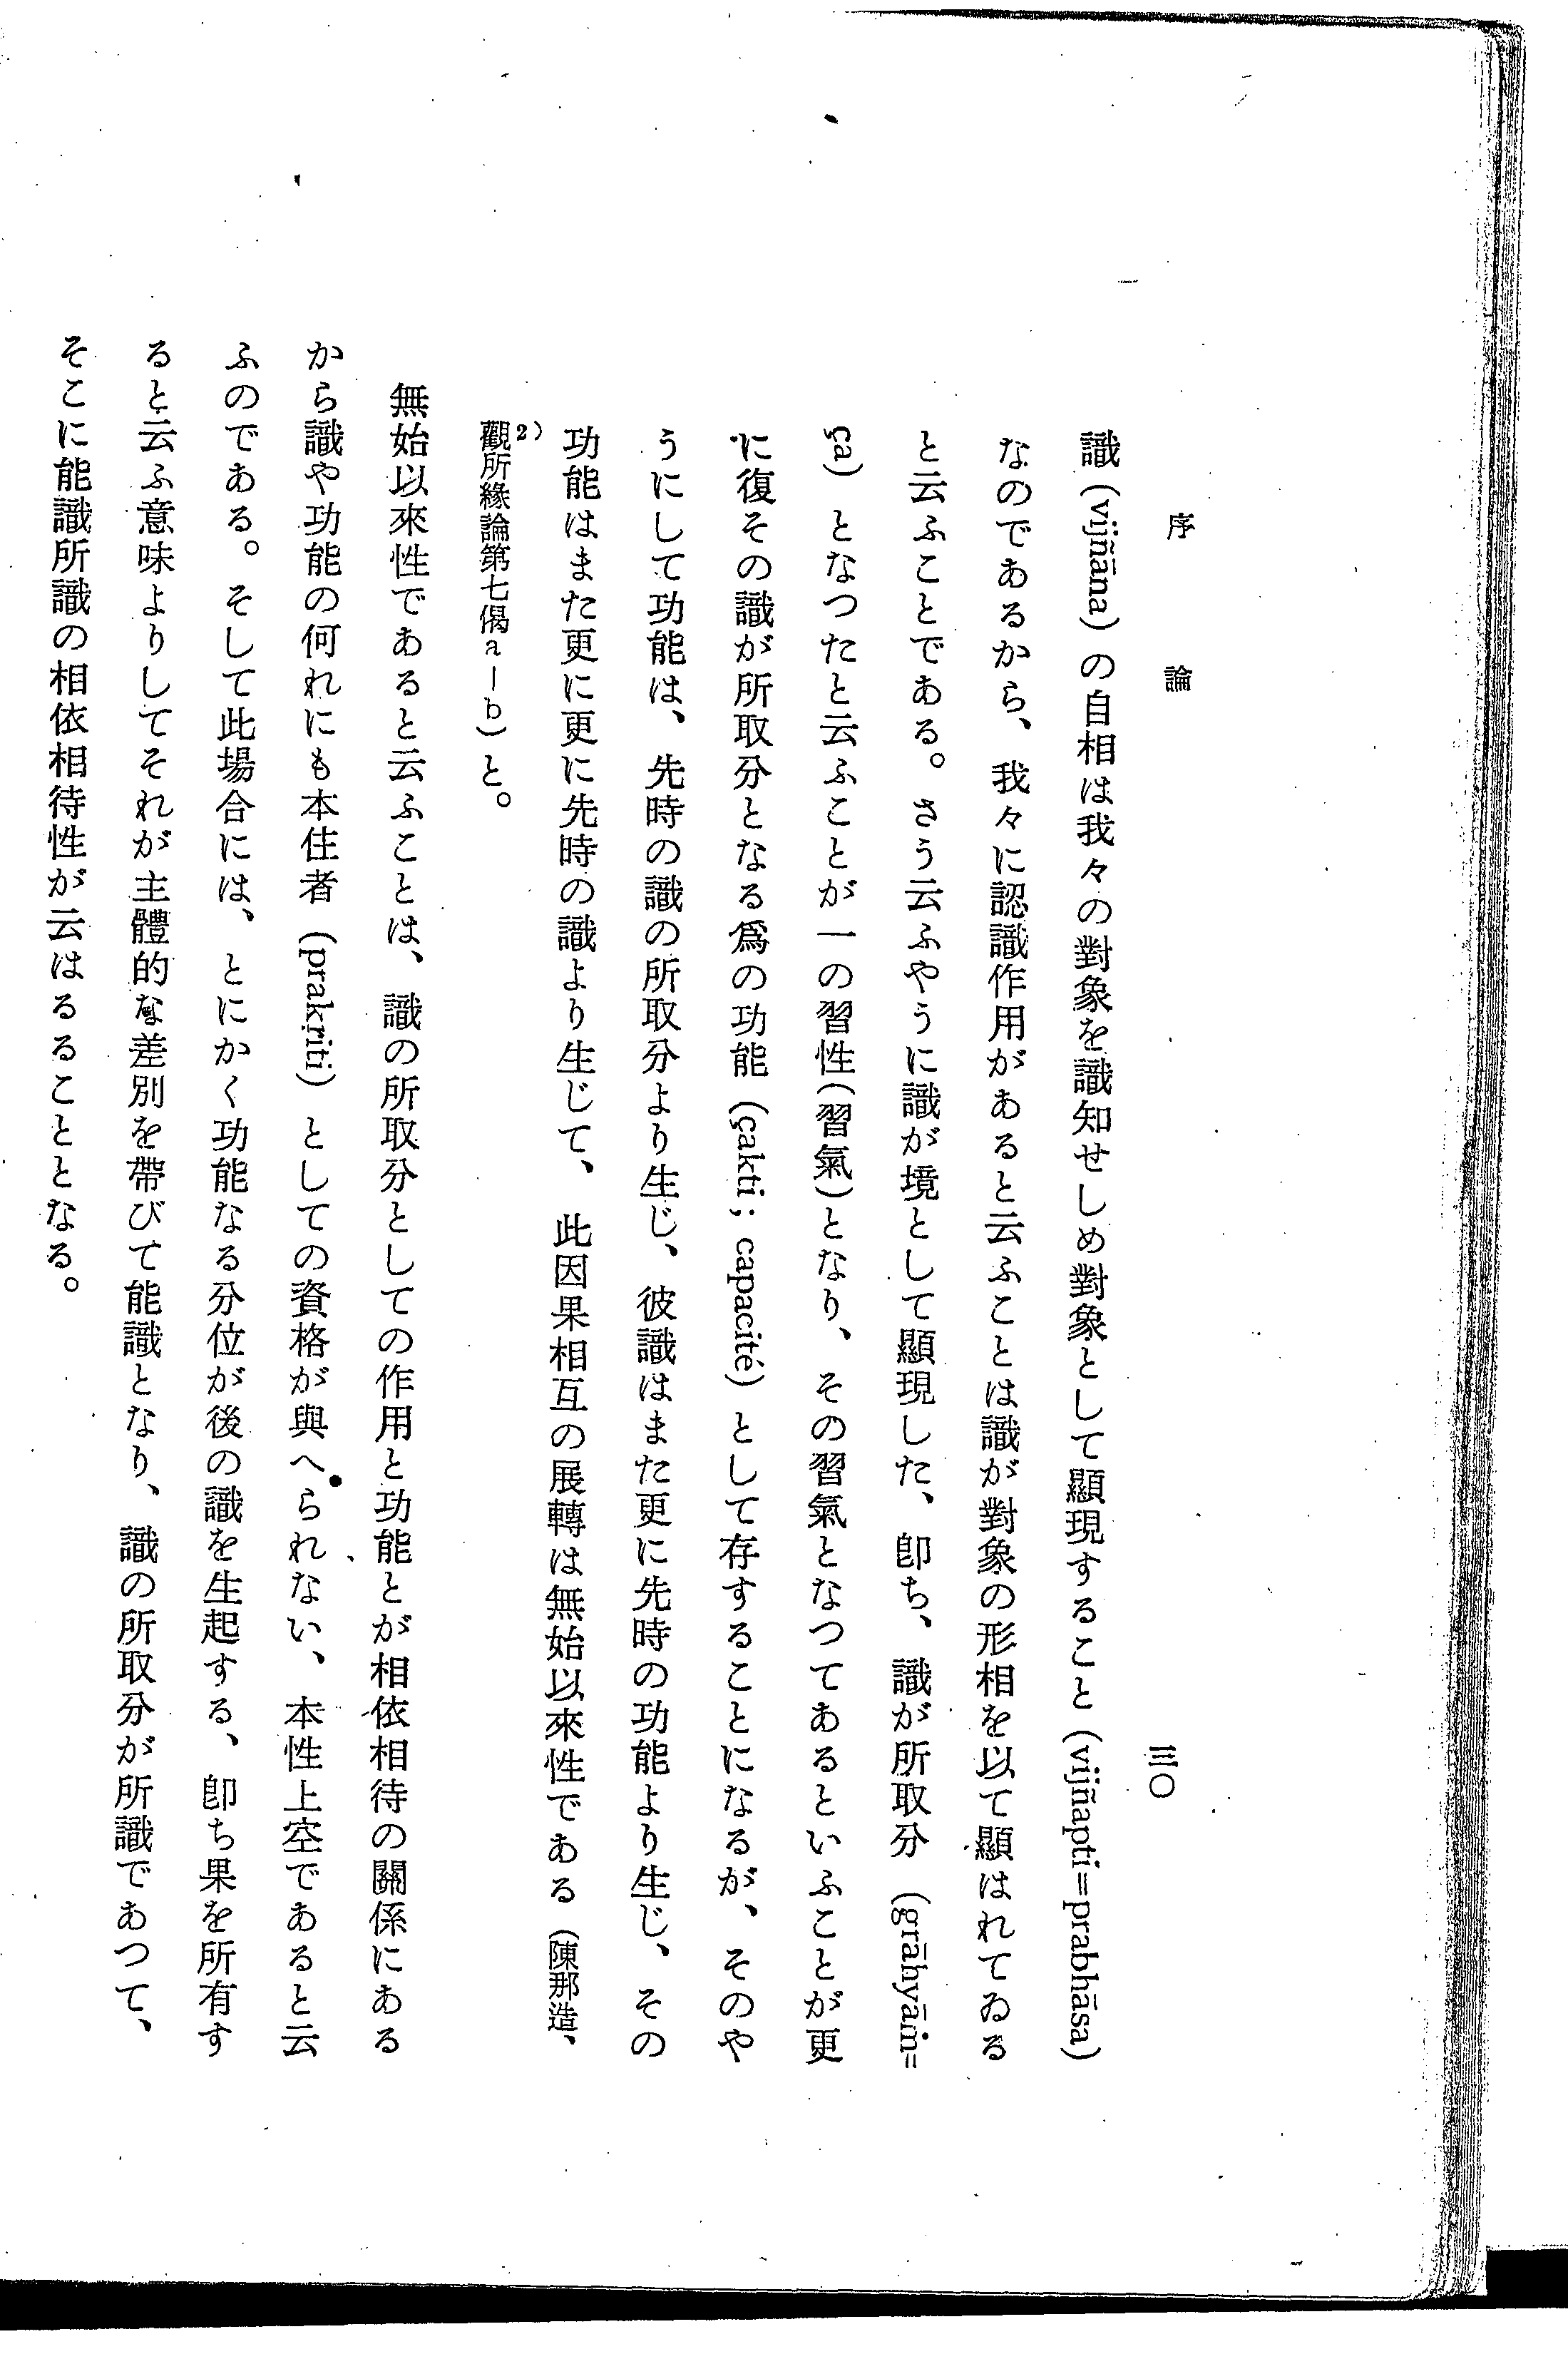 序論
三〇
識 (vijñāna) の自相は我々の對象を識知せしめ對象として顯現すること (vijñapti=prabhāsa)
なのであるから、我々に認識作用があると云ふことは識が對象の形相を以て顯はれてゐる
と云ふことである。さう云ふやうに識が境として顯現した、卽ち、識が所取分 (grāhyāṁ=
ça) となつたと云ふことが一の習性(習氣)となり、その習氣となつてあるといふことが更
に復その識が所取分となる爲の功能 (çakti; capacité) として存することになるが、そのや
うにして功能は、先時の識の所取分より生じ、彼識はまた更に先時の功能より生じ、その
功能はまた更に更に先時の識より生じて、此因果相互の展轉は無始以來性である (陳那造、
觀所緣論第七偈a—b) と。2)
無始以來性であると云ふことは、識の所取分としての作用と功能とが相依相待の關係にある
から識や功能の何れにも本住者 (prakṛiti) としての資格が與へられない、本性上空であると云
ふのである。そして此場合には、とにかく功能なる分位が後の識を生起する、卽ち果を所有す
ると云ふ意味よりしてそれが主體的な差別を帶びて能識となり、識の所取分が所識であつて、
そこに能識所識の相依相待性が云はるることとなる。